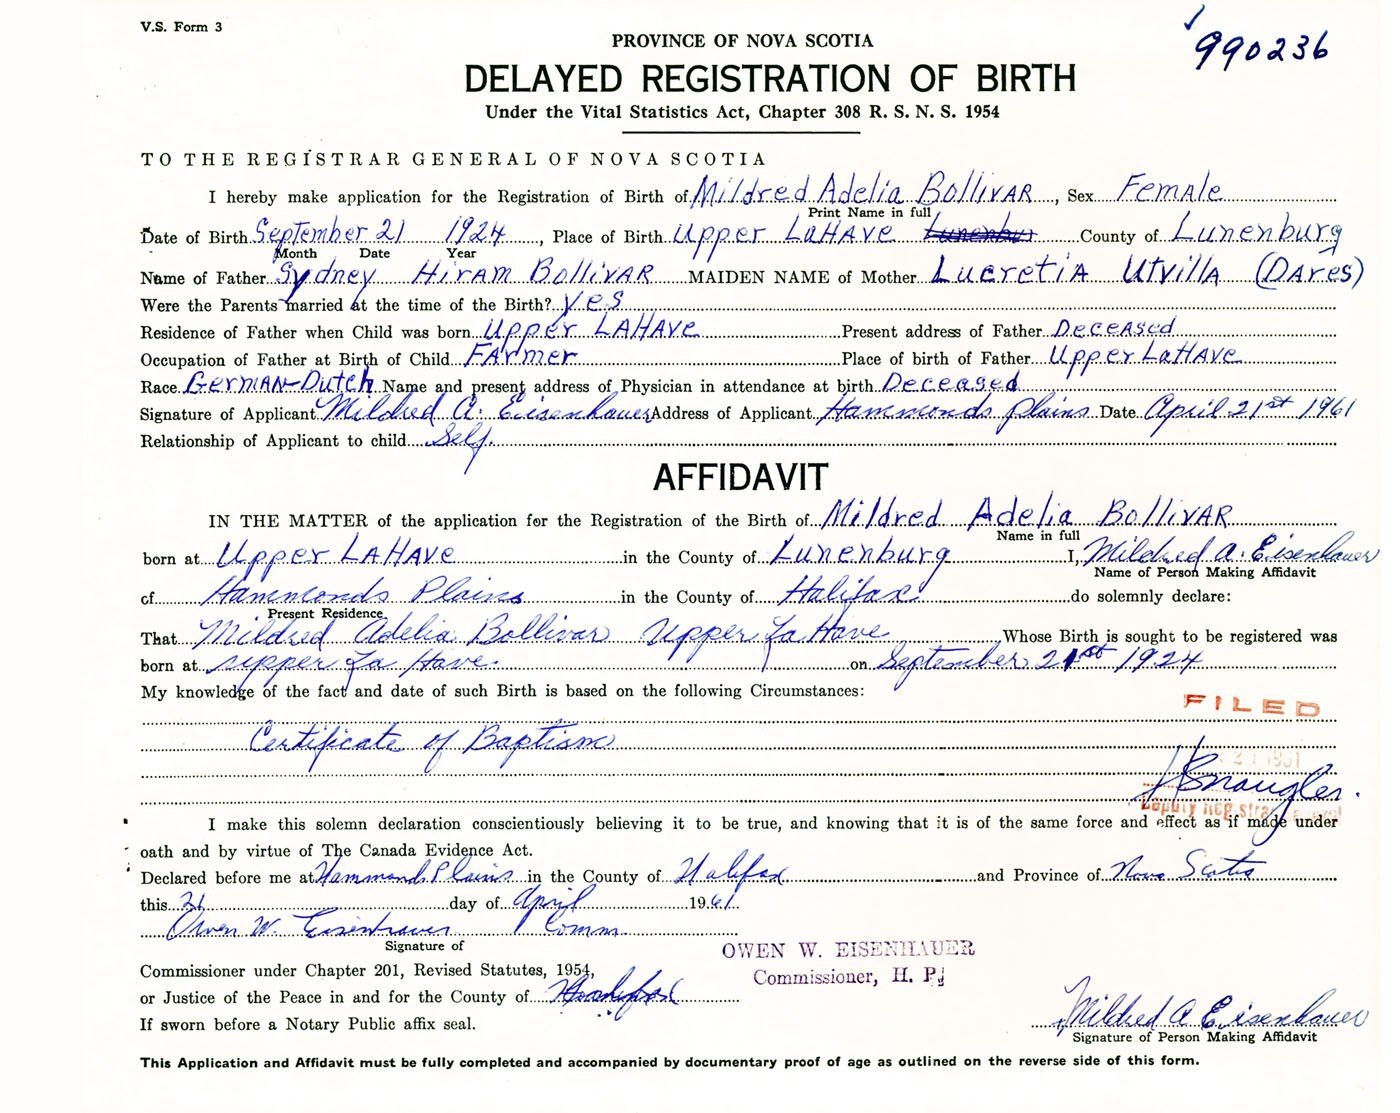 V.S. Form 3
990236
PROVINCE OF NOVA SCOTIA
DELAYED REGISTRATION OF BIRTH
Under the Vital Statistics Act, Chapter 308 R. S. N. S. 1954
TO THE REGISTRAR GENERAL OF NOVA SCOTIA
I hereby make application for the Registration of Birth of Mildred Adelia Bollivar, Sex Female
Print Name in full
Date of Birth September 21 1924, Place of Birth Upper LaHave Lunenbur County of Lunenburg
Month Date Year
Name of Father Sydney Hiram Bollivar MAIDEN NAME of Mother Lucretia Utvilla (Dares)
Were the Parents married at the time of the Birth? yes
Residence of Father when Child was born Upper LaHave Present address of Father Deceased
Occupation of Father at Birth of Child Farmer Place of birth of Father Upper LaHave
Race German-Dutch Name and present address of Physician in attendance at birth Deceased
Signature of Applicant Mildred A. Eisenhauer Address of Applicant Hammonds Plains Date April 21st 1961
Relationship of Applicant to child Self.
AFFIDAVIT
IN THE MATTER of the application for the Registration of the Birth of Mildred Adelia Bollivar
Name in full
born at Upper LaHave in the County of Lunenburg I, Mildred A. Eisenhauer
Name of Person Making Affidavit
of Hammonds Plains in the County of Halifax do solemnly declare:
Present Residence
That Mildred Adelia Bollivar Upper LaHave Whose Birth is sought to be registered was
born at Upper La Have on September 21st 1924
My knowledge of the fact and date of such Birth is based on the following Circumstances:
FILED
Certificate of Baptism
21 1961
HSnaugler
Deputy Registrar General
I make this solemn declaration conscientiously believing it to be true, and knowing that it is of the same force and effect as if made under
oath and by virtue of The Canada Evidence Act.
Declared before me at Hammonds Plains in the County of Halifax and Province of Nova Scotia
this 21 day of April 1961
Owen W. Eisenhauer Comm.
Signature of
OWEN W. EISENHAUER
Commissioner, H. P.
Commissioner under Chapter 201, Revised Statutes, 1954,
or Justice of the Peace in and for the County of Halifax
If sworn before a Notary Public affix seal.
Mildred A Eisenhauer
Signature of Person Making Affidavit
This Application and Affidavit must be fully completed and accompanied by documentary proof of age as outlined on the reverse side of this form.